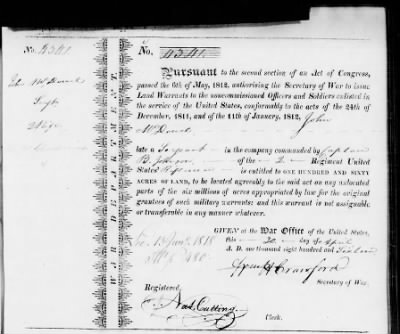 No. 4541.
No. 4541.
John
WAR DEPARTMENT
Pursuant to the second section of an Act of Congress,
passed the 6th of May, 1812, authorising the Secretary of War to issue
Land Warrants to the noncommissioned Officers and Soldiers enlisted in
the service of the United States, conformably to the acts of the 24th of
December, 1811, and of the 11th of January, 1812, John
late a in the company commanded by Captain
B. Johnson of the 2 Regiment United
States' Riflemen is entitled to ONE HUNDRED AND SIXTY
ACRES OF LAND, to be located agreeably to the said act on any unlocated
parts of the six millions of acres appropriated by law for the original
grantees of such military warrants; and this warrant is not assignable
or transferable in any manner whatever.
GIVEN at the War Office of the United States,
this 20 day of April
A. D. one thousand eight hundred and
1818
480
Crawford
Secretary of War.
Registered,
Nat. Cutting
Clerk.